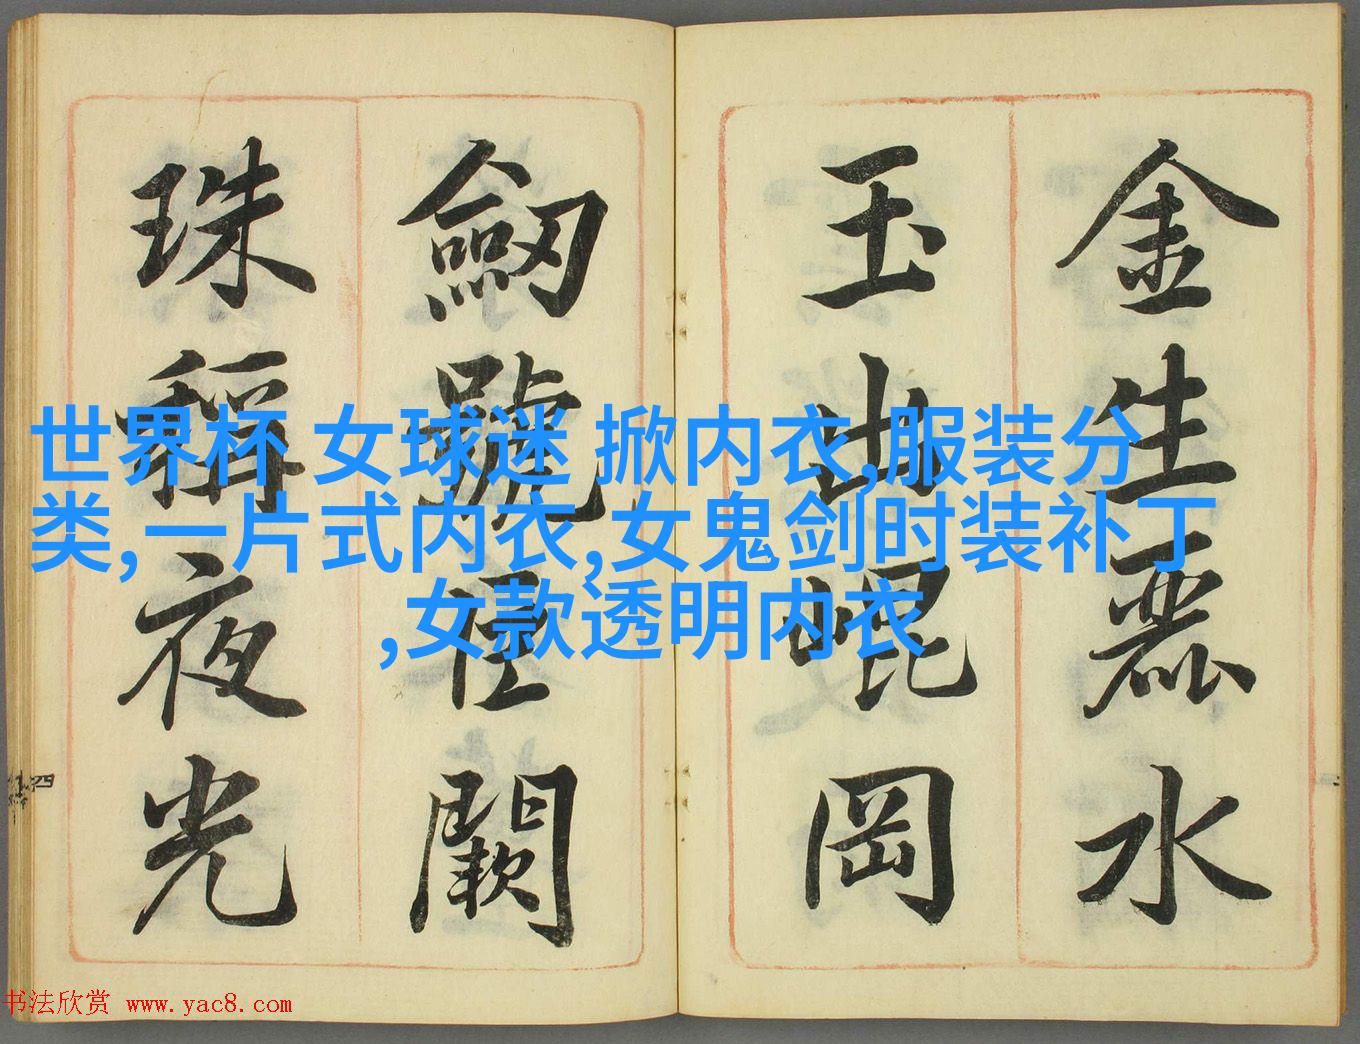 金生麗水
玉出崐岡
劒號巨闕
珠稱夜光
世界杯 女球迷 掀内衣,服装分
类,一片式内衣,女鬼剑时装补丁
,女款透明内衣
四
书法欣赏 www.yac8.com